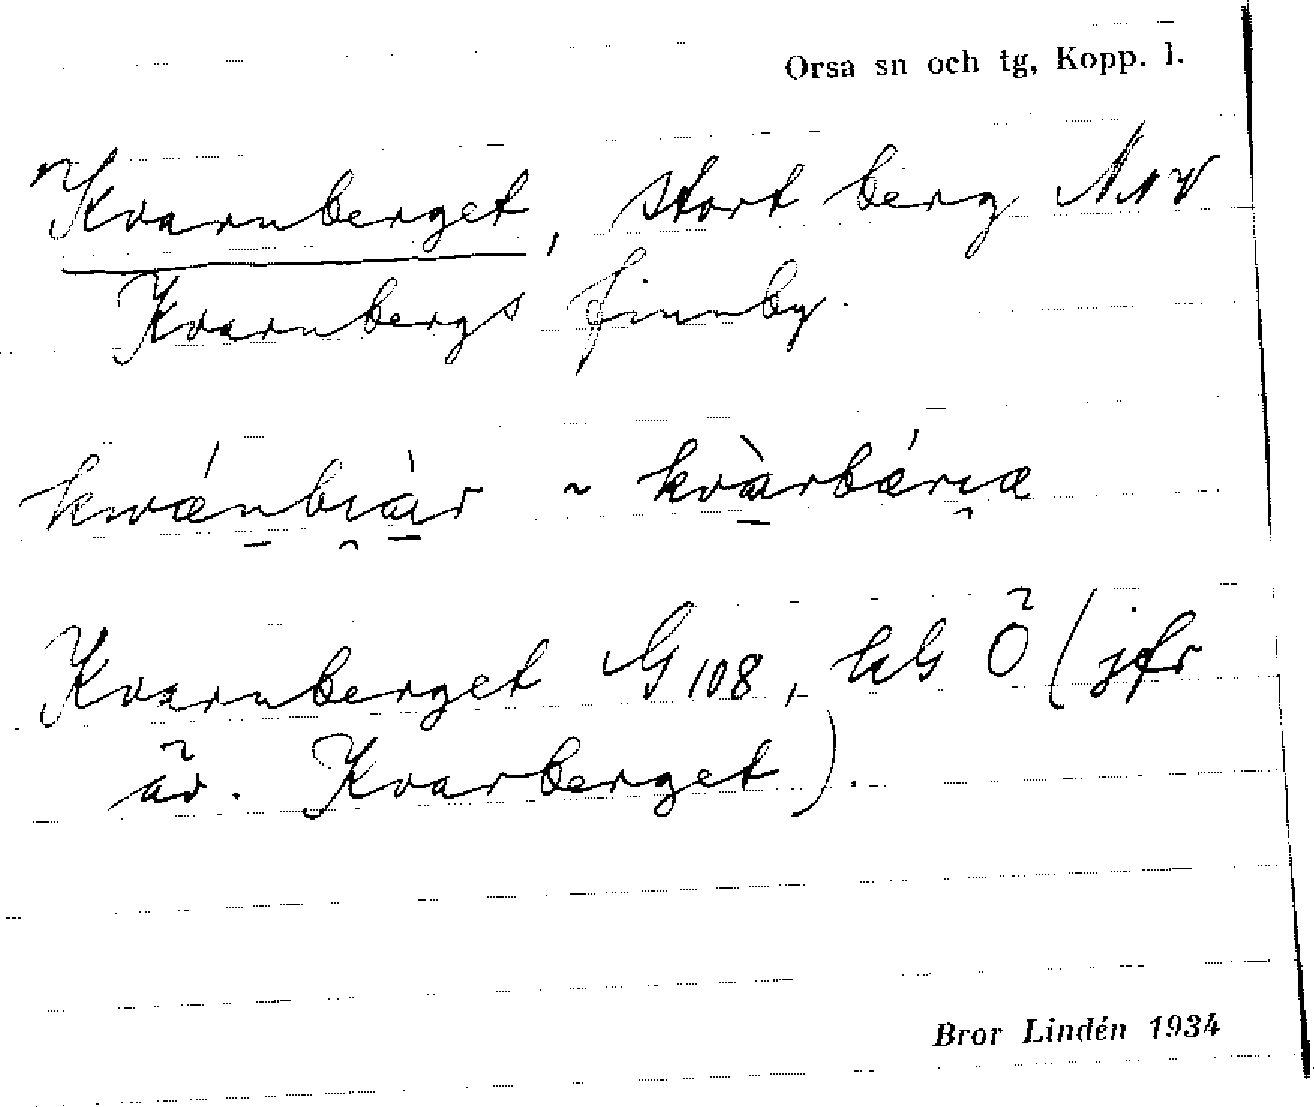 Orsa sn och tg, Kopp. l.
Kvarnberget, stort berg NNV
Kvarnbergs finnby.
kwánbıàr ~ kvàrbárıa
Kvarnberget G 108, kG Õ (jfr
äv. Kvarberget).
Bror Lindén 1934